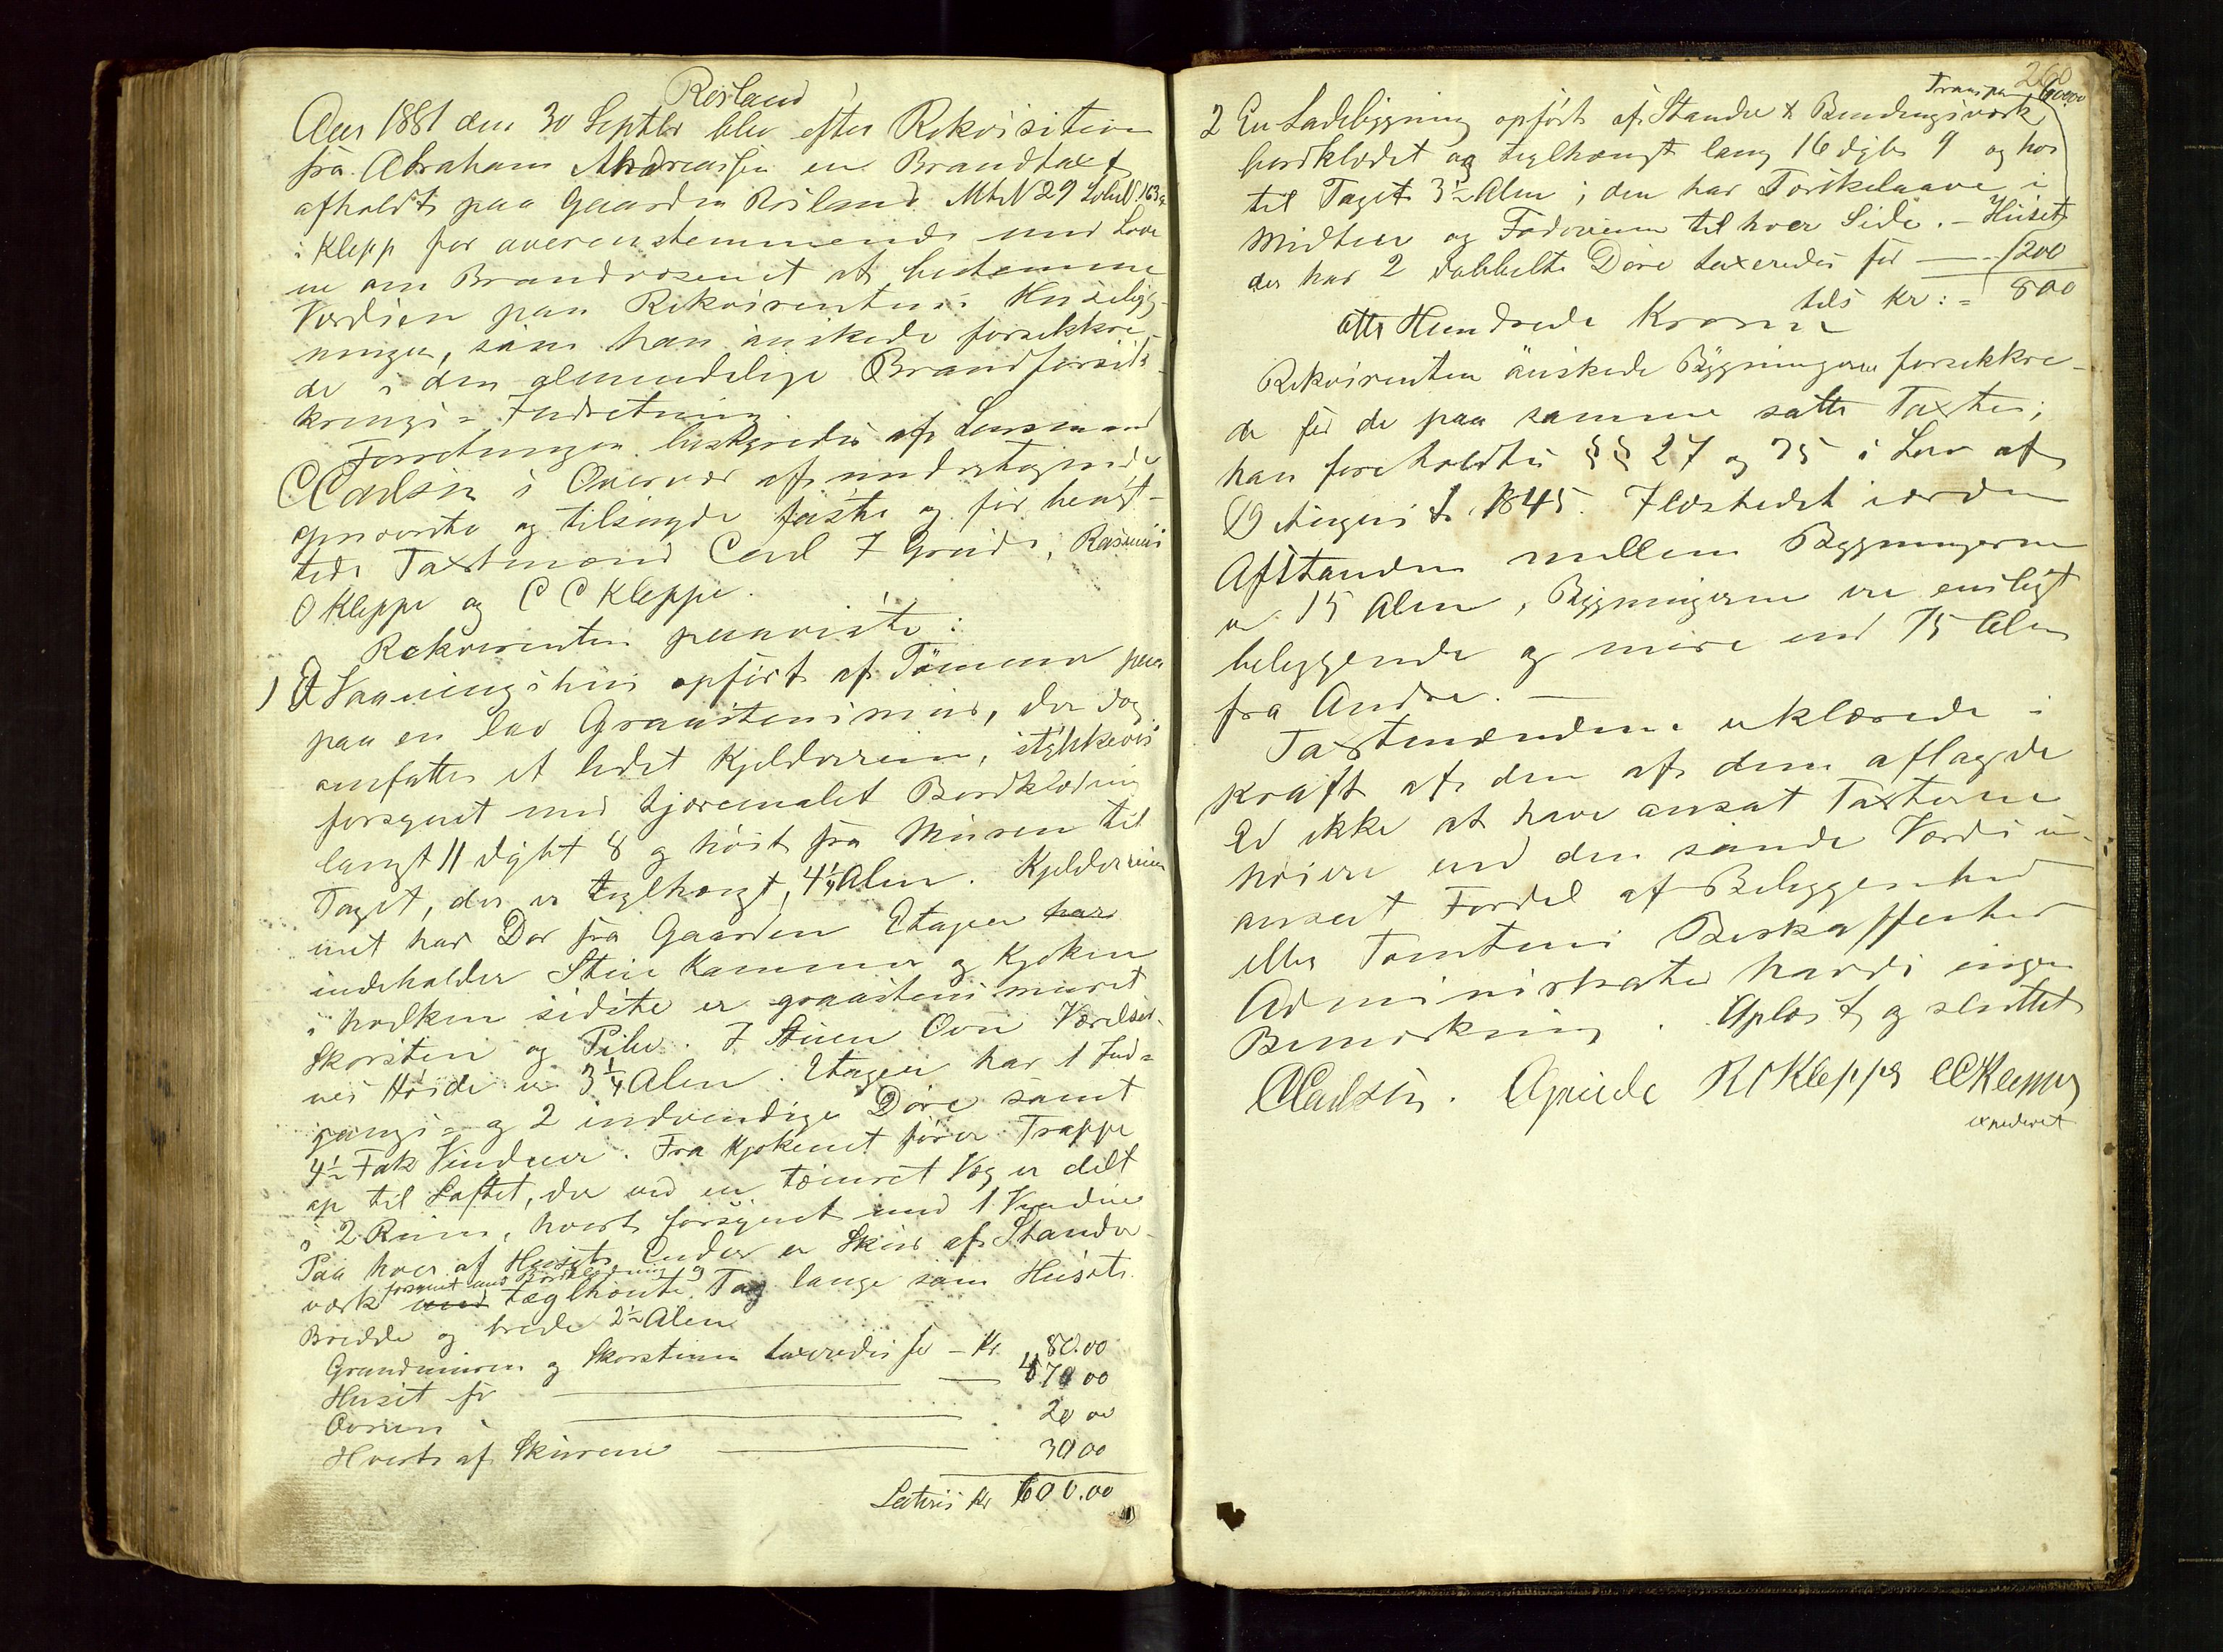 Røsland
Aar 1881 den 30 Septbr blev efter Rekvisition
fra Abraham Andreassen en Brandtaxt
afholdt paa Gaarden Røsland Mt N 29 Løbe N 163a
i Klepp for overenstemmende med Love
ne om Brandvæsenet at bestemme
Værdien paa Rekvirentens Husebyg-
ninger, som han ønskede forsikkre-
de i den almindelige Brandforsik-
krings-Indretning.
Forretningen beskyredes af Lensmand
CCarlsen i Overvær af undertegnede
opnævnte og tilsagde faste og før beæd-
tede Taxtmænd Carl J Grude, Rasmus
O Kleppe og C C Kleppe.
Rekvirenten paaviste:
1 Et Vaaningshus opført af Tømmer paa
paa en lav Graastensmuur, der dog
omfatter et lidet Kjelderrum, stykkevis
forsynet med tjæremalet Bordklædning
langt 11 dybt 8 og høit fra Muren til
Taget, der er teglhængt, 4½ Alen. Kjelderrum
met har Dør fra Gaarden Etagen har
indeholder Stue Kammer og Kjøken
i hvilken sidste er graastensmuret
Skorsten og Pibe. I Stuen Ovn Værelser-
nes Høide er 3¼ Alen. Etagen har 1 Ind-
gangs- og 2 indvendige Døre samt
4½ Fak Vinduer. Fra Kjøkenet fører Trappe
op til Loftet, der ved en tømret Væg er delt
i 2 Rum, hvert forsynet med 1 Vindue
Paa hver af Husets Ender er Skur af Stander-
forsynet med Bordklædning og
værk med teglhængte Tag lange som Husets
Bredde og brede 2½ Alen
Grundmuren og Skorstenen taxeredes for - Kr. 80.00
Huset for 470 00
Ovnen - 20 00
Hvert af Skurene 30 00
Lateris Kr 600.00
260
Transpor 600.00
2 En Ladebygning opført af Stander & Bindingsværk
bordklædet og teglhængt lang 16 dyb 9 og høi
til Taget 3½ Alen; den har Tærskelaave i
Midten og Foderrum til hver Side. - Huset
der har 2 dobbelte Døre taxeredes for 200
tils Kr: = 800
otte Hundrede Kroner
Rekvirenten ønskede Bygningerne forsikkre-
de for de paa samme satte Taxter;
han foreholdtes §§ 27 og 75 i Lov af
19 August 1845. Ildstedet i orden
Afstanden mellem Bygningerne
er 15 Alen, Bygningerne ere ensligt
beliggende og mere end 75 Alen
fra Andre. —
Taxtmændene erklærede i
Kraft af den af dem aflagde
Ed ikke at have ansat Taxterne
høiere end den sande Værdi u-
anseet Fordel af Beliggenhed
eller Tomtens Beskaffenhed
Administrator havde ingen
Bemærkning. Oplæst og sluttet
CCarlsen. CGrude ROKleppe CCKleppe
expederet